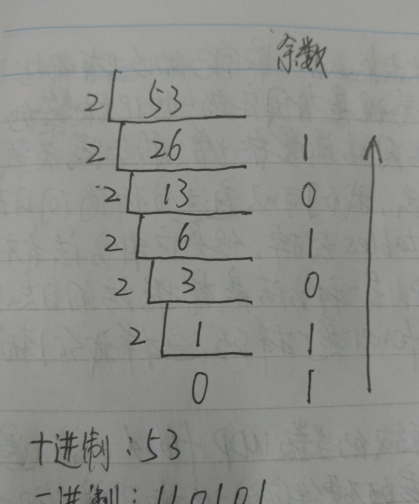 余数
2 53
2 26 1
2 13 0
2 6 1
2 3 0
2 1 1
0 1
十进制:53
二进制:110101